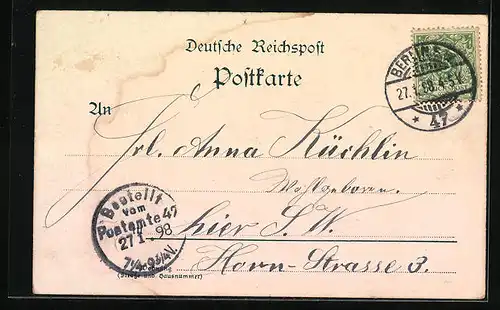 Deutsche Reichspost
Postkarte
An
Frl. Anna Küchlin
Wohlgeboren.
hier S. W.
Horn-Strasse 3.
(Straße und Hausnummer)
BERLIN S.W.
27.1.98. 4-5N.
* 47 *
Bestellt
vom
Postamte 47
27 1. 98
7¼-9¾V.